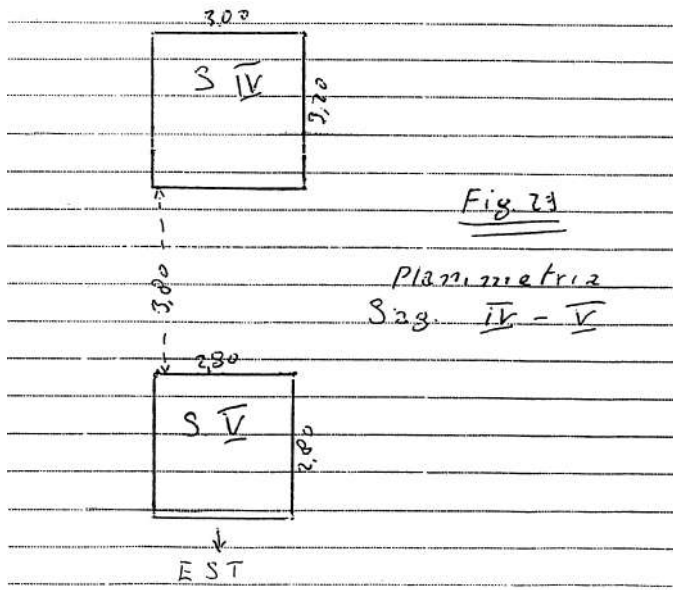 3,00
S IV
3,20
Fig. 23
3,80
Planimetria
Sag. IV - V
2,80
S V
2,80
EST